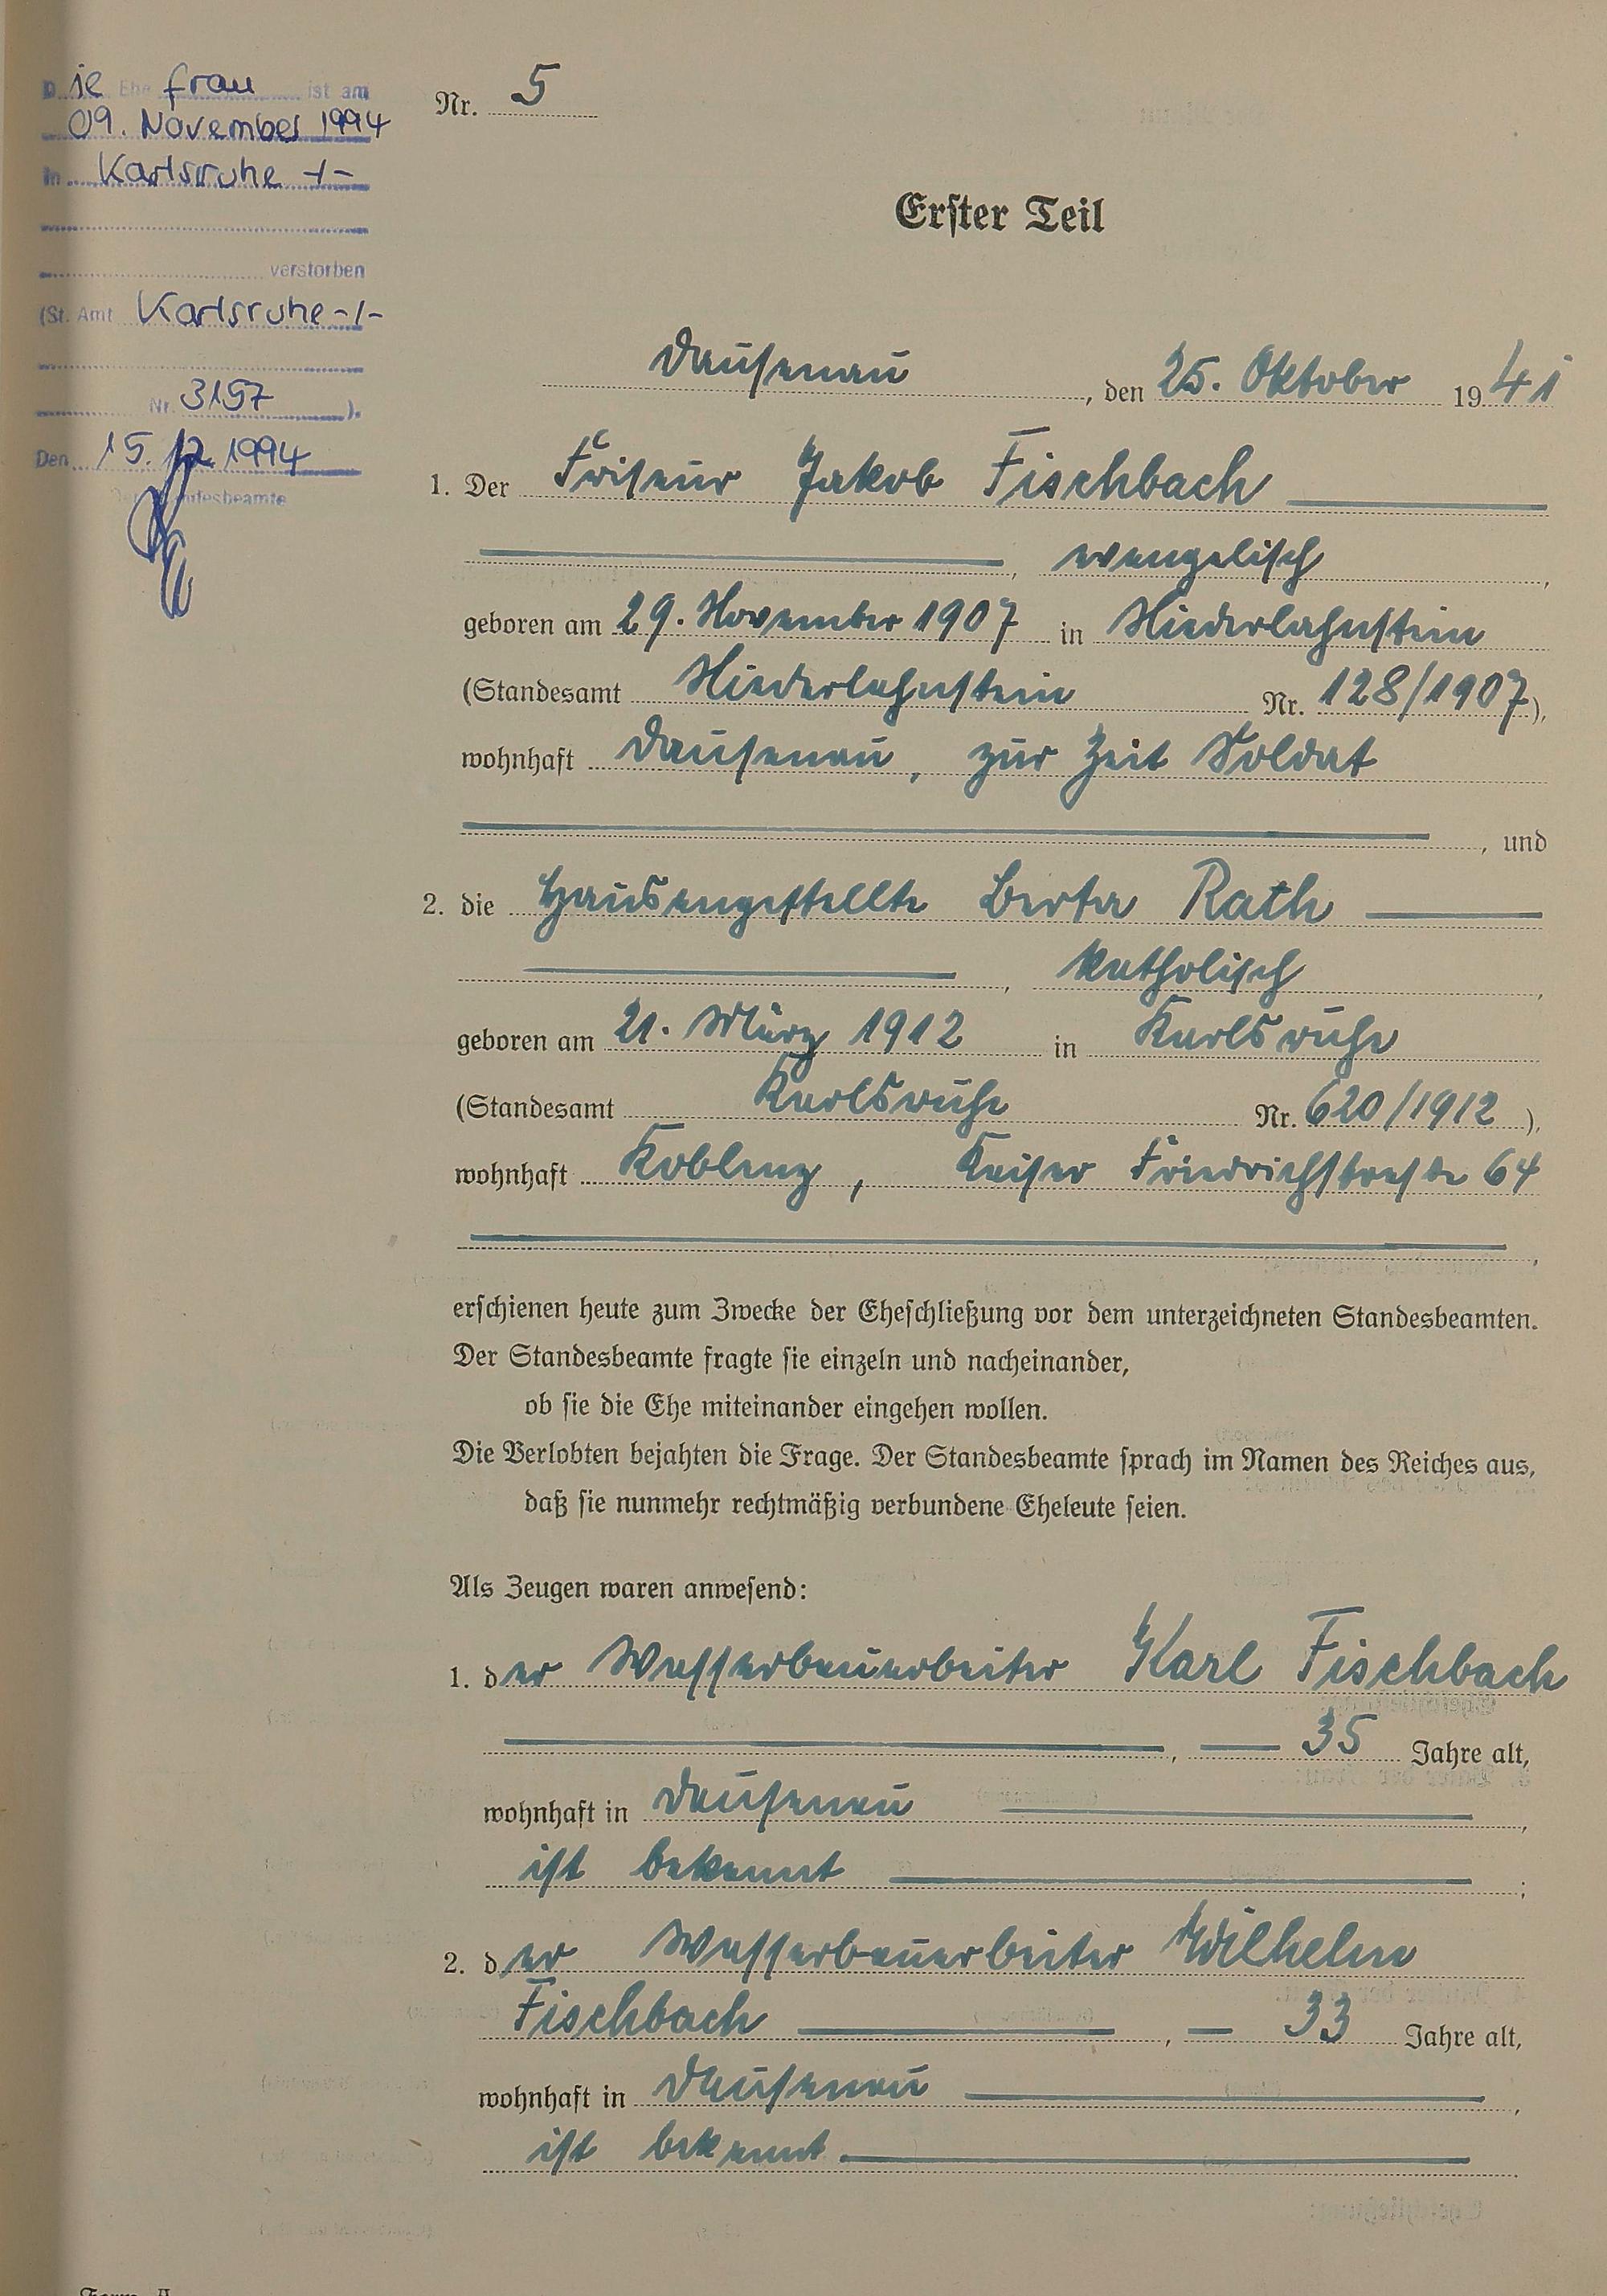 Die Ehefrau ist am
09. November 1994
in Karlsruhe -/-
verstorben
(St. Amt Karlsruhe -/-
Nr. 3157 ).
Den 15.12.1994
Der Standesbeamte
Nr. 5
Erster Teil
Dausenau, den 25. Oktober 1941
1. Der Friseur Jakob Fischbach
, evangelisch,
geboren am 29. November 1907 in Niederlahnstein
(Standesamt Niederlahnstein Nr. 128/1907),
wohnhaft Dausenau, zur Zeit Soldat
, und
2. die Hausangestellte Berta Rath
, katholisch,
geboren am 21. März 1912 in Karlsruhe
(Standesamt Karlsruhe Nr. 620/1912),
wohnhaft Koblenz, Kaiser Friedrichstraße 64
,
erschienen heute zum Zwecke der Eheschließung vor dem unterzeichneten Standesbeamten.
Der Standesbeamte fragte sie einzeln und nacheinander,
ob sie die Ehe miteinander eingehen wollen.
Die Verlobten bejahten die Frage. Der Standesbeamte sprach im Namen des Reiches aus,
daß sie nunmehr rechtmäßig verbundene Eheleute seien.
Als Zeugen waren anwesend:
1. der Wasserbauarbeiter Karl Fischbach
, 35 Jahre alt,
wohnhaft in Dausenau,
ist bekannt;
2. der Wasserbauarbeiter Wilhelm
Fischbach, 33 Jahre alt,
wohnhaft in Dausenau,
ist bekannt